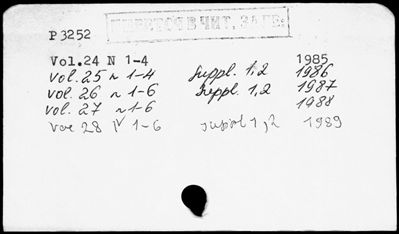 ПЕРЕТОСВ ЧИТ. ЗАЛЕ.
P 3252
Vol.24 N 1-4 1985
Vol. 25 N 1-4 Suppl. 1,2 1986
vol. 26 N 1-6 Suppl. 1,2 1987
vol. 27 N 1-6 1988
vol 28 N 1-6 suppl 1,2 1989